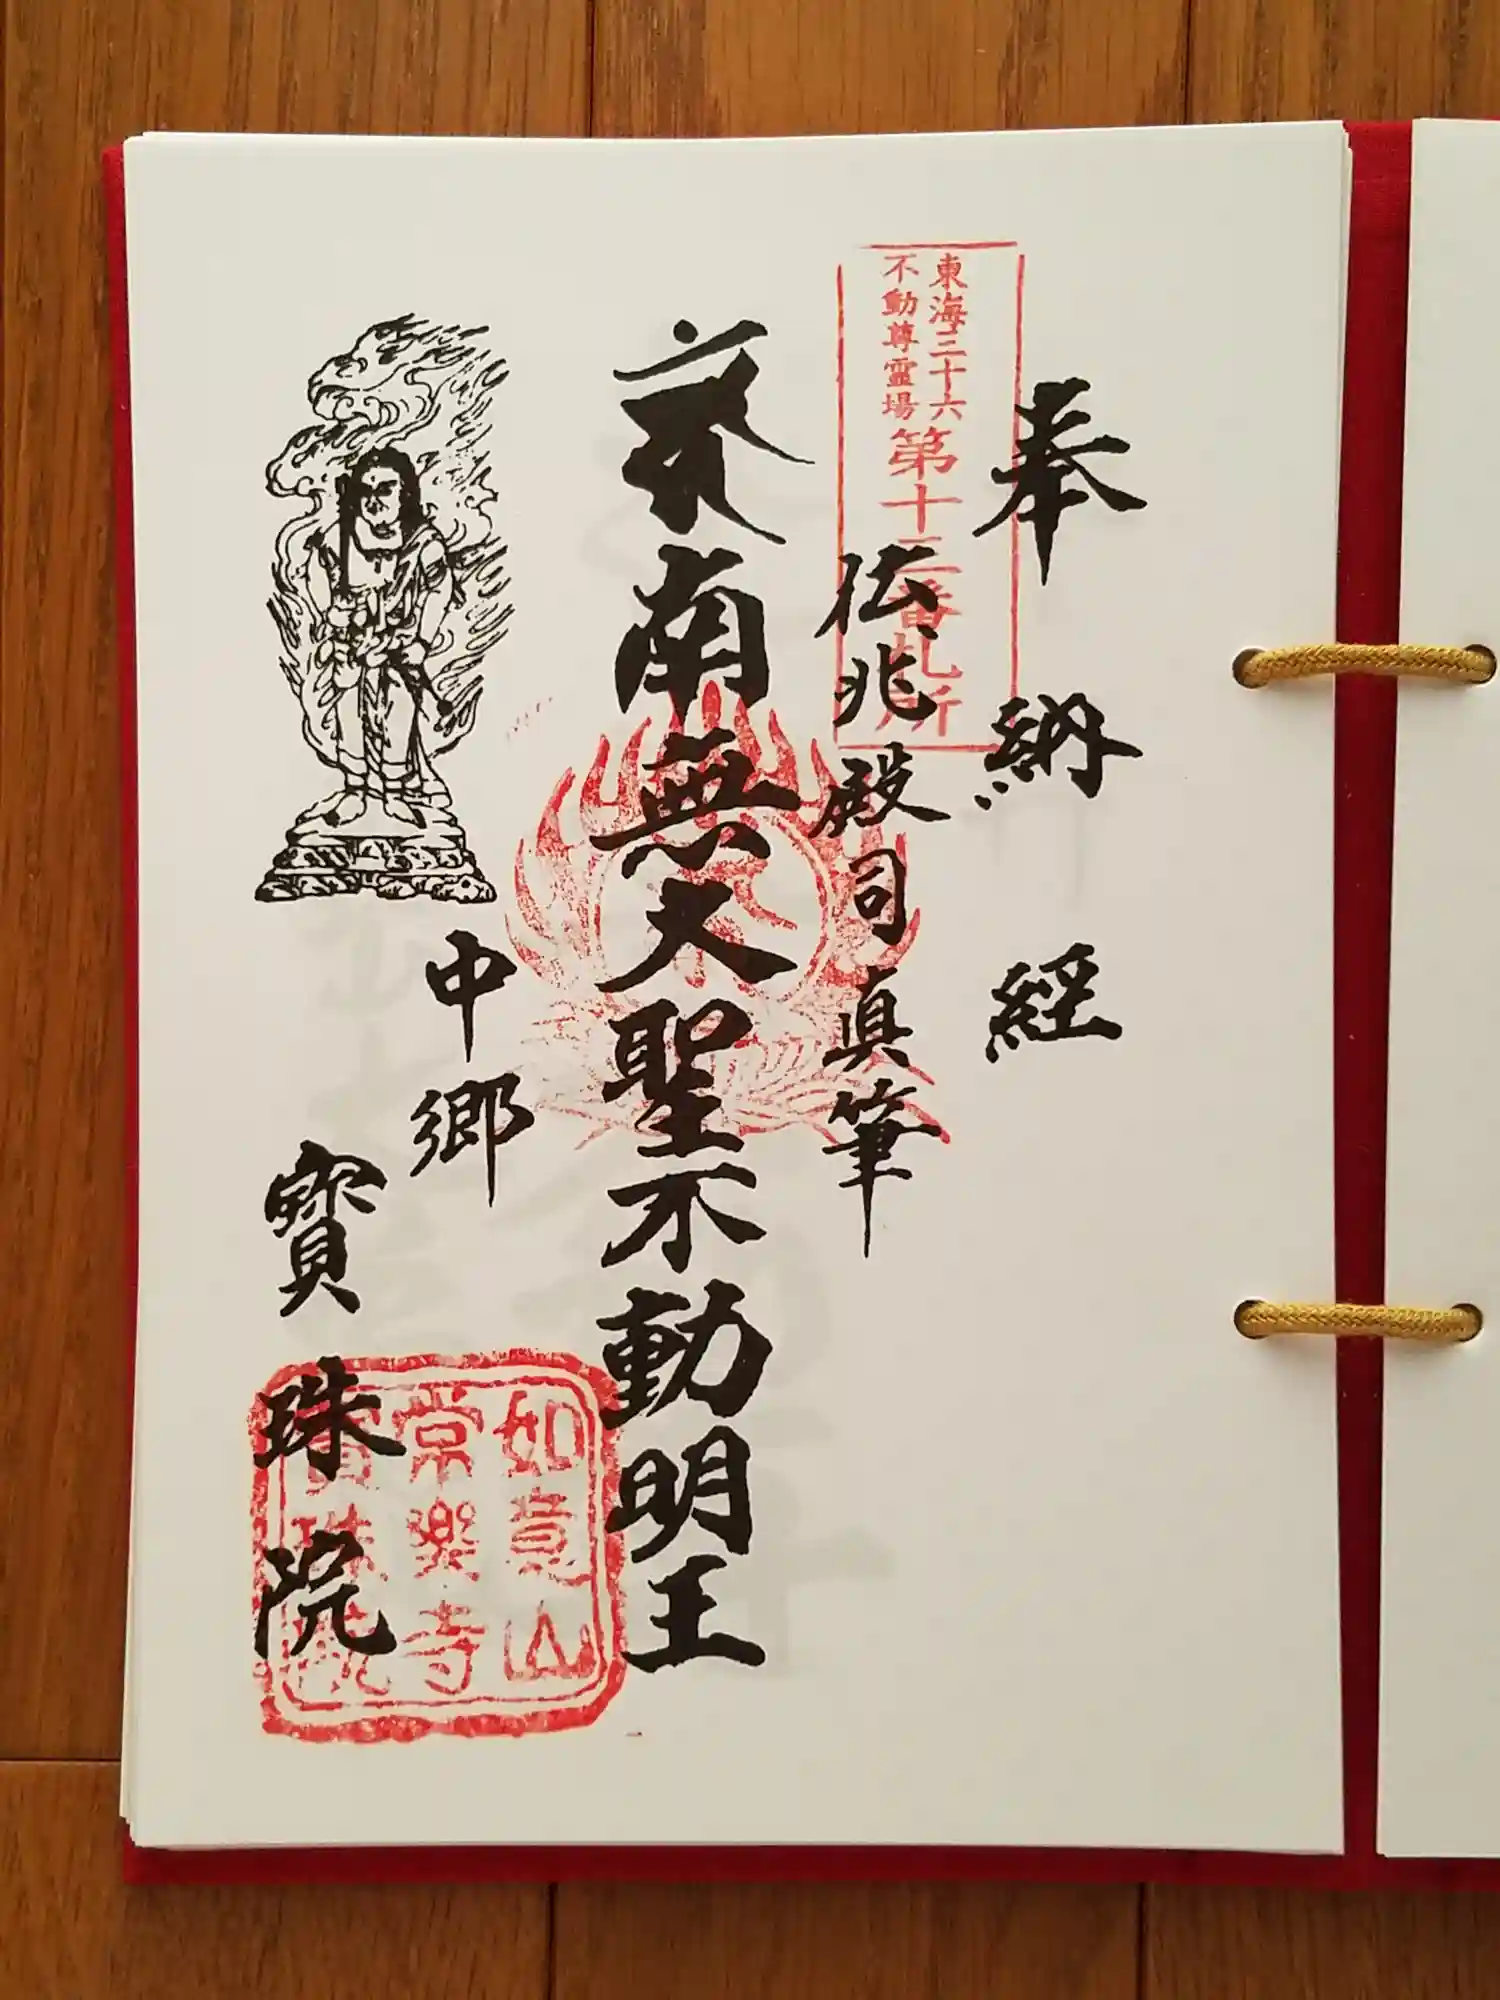 奉納経
東海三十六
不動尊霊場
第十三番札所
伝兆殿司真筆
南無大聖不動明王
中郷
寳珠院
如意山
常楽寺
寳珠院